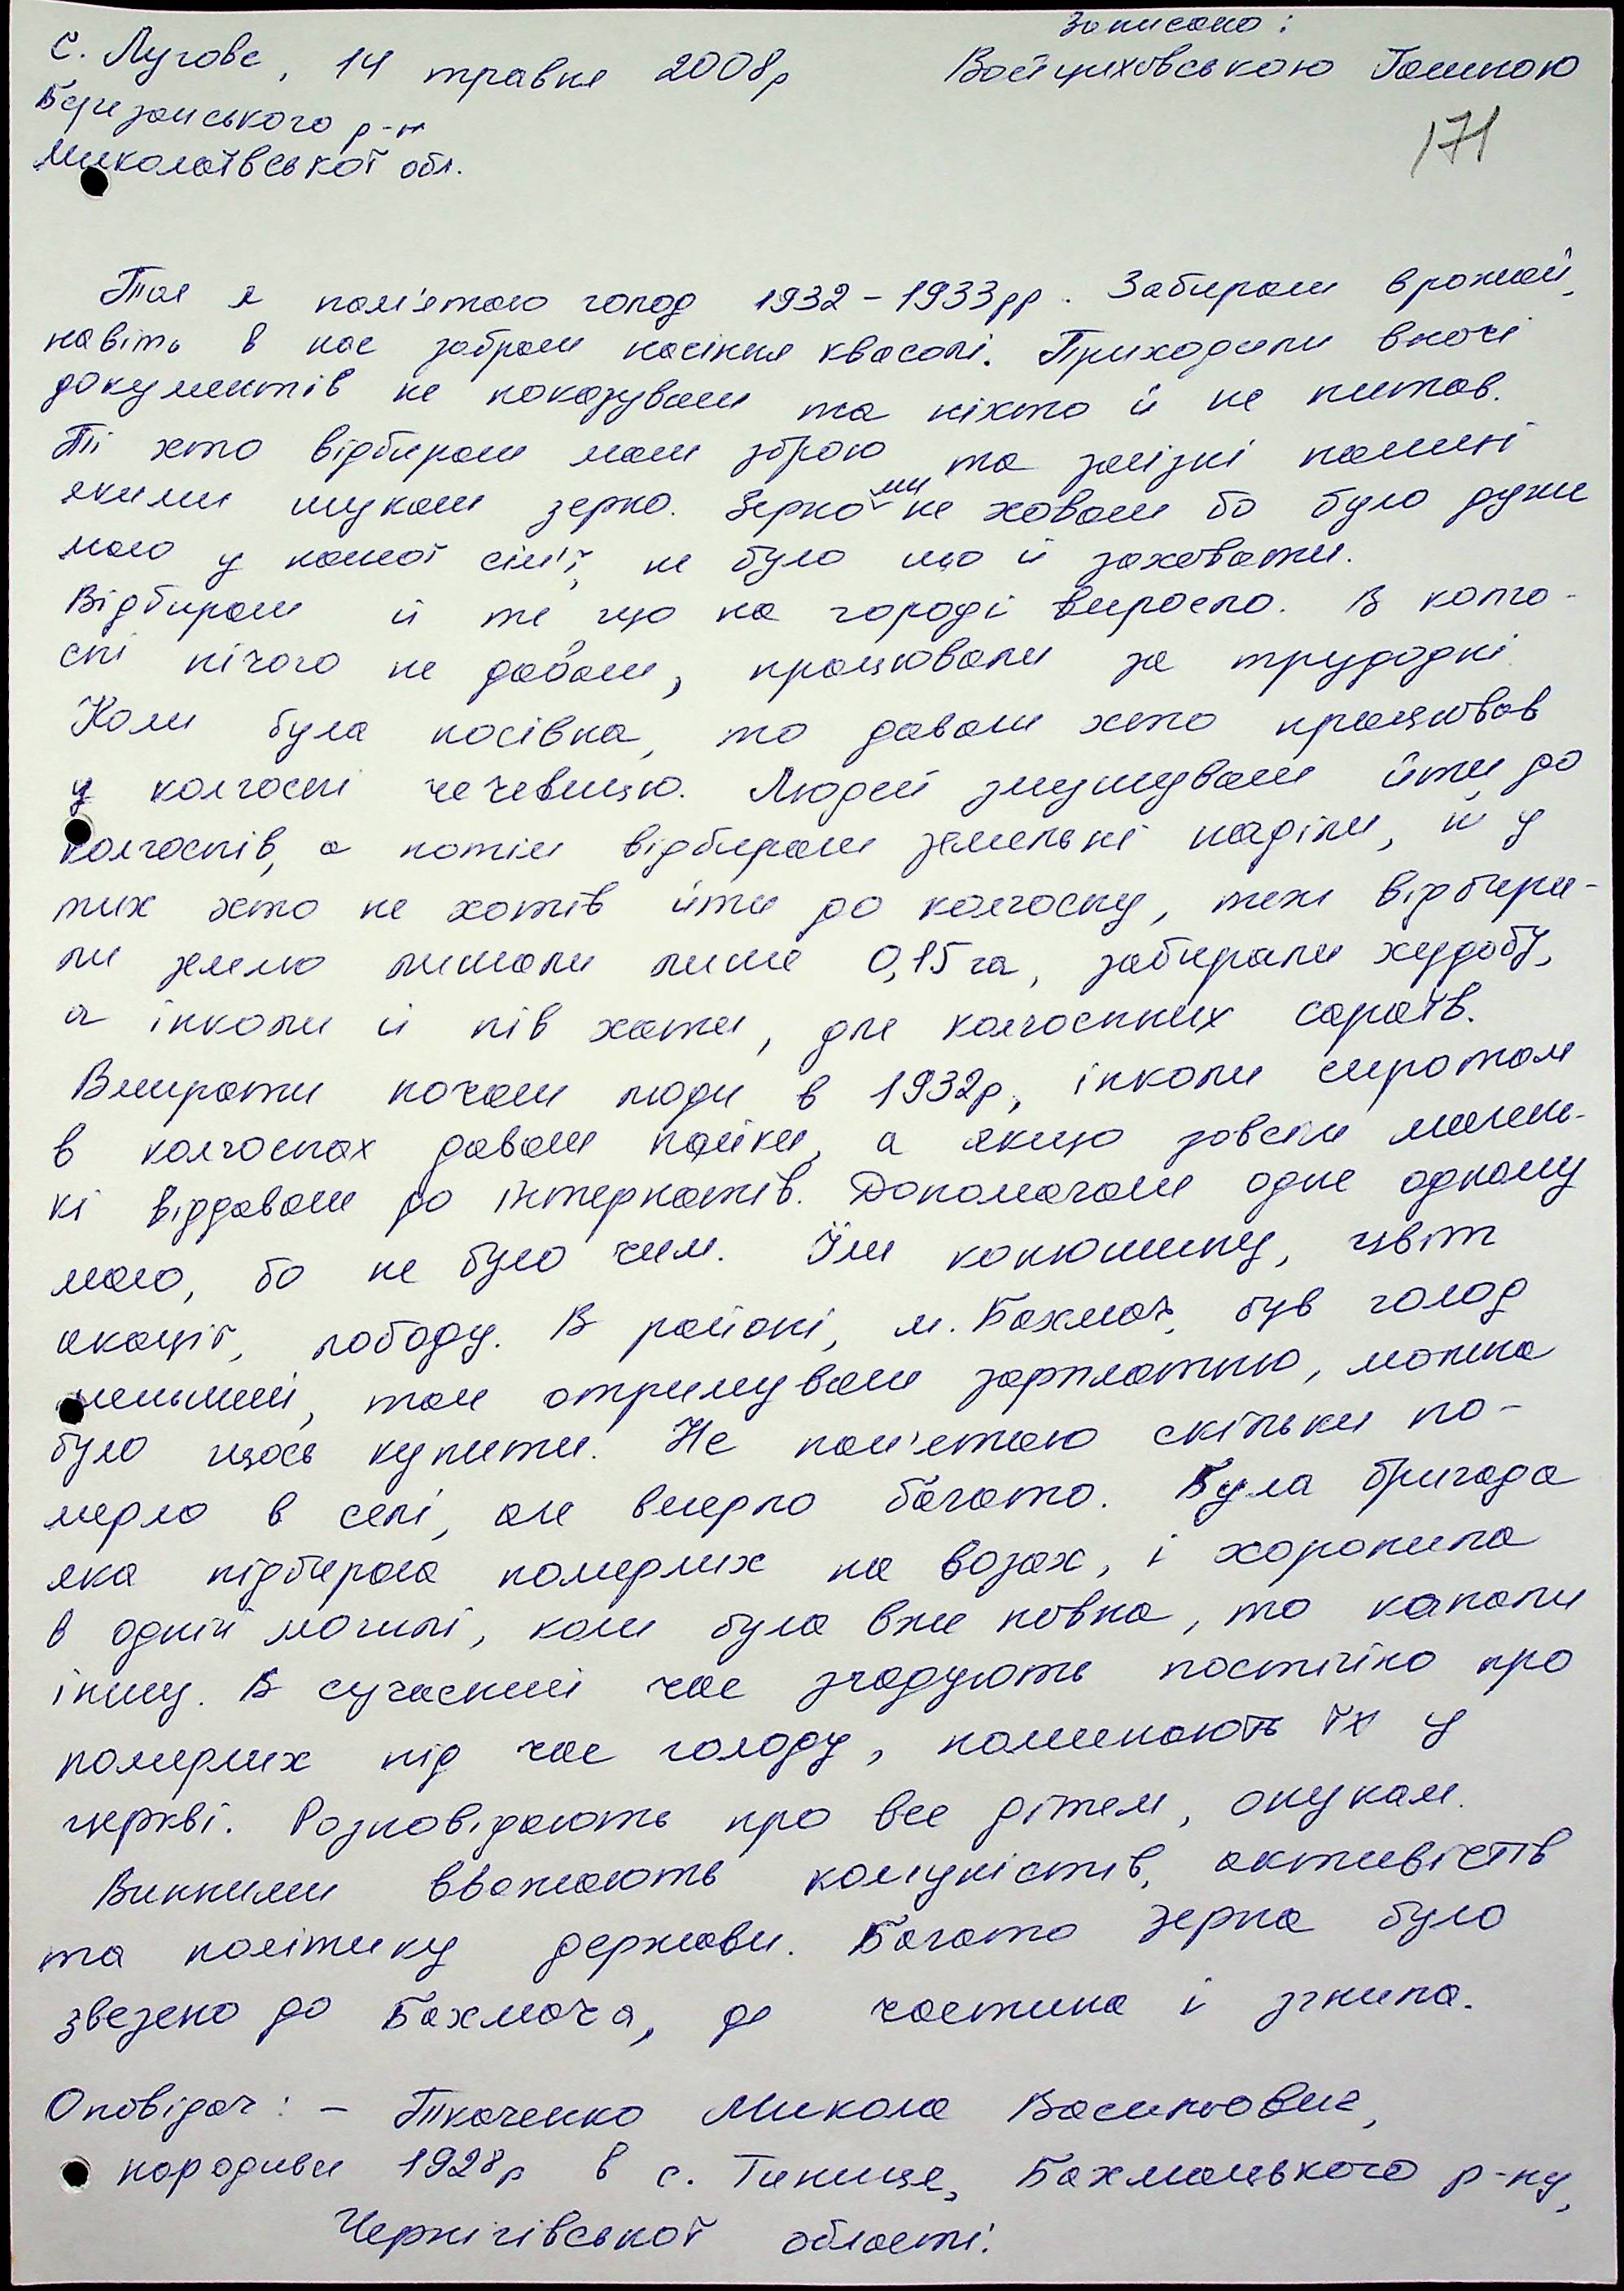 Записано:
С. Лугове, 14 травня 2008р Войциховською Галиною
Березанського р-н
Миколаївської обл.
171
Так я пам'ятаю голод 1932-1933рр. Забирали врожай,
навіть в нас забрали насіння квасолі. Приходили вночі
документів не показували та ніхто й не питав.
Ті хто відбирали мали зброю та залізні палиці
якими шукали зерно. Зерно ми не ховали бо було дуже
мало у нашої сім'ї, не було що й заховати.
Відбирали й те що на городі виросло. В колго-
спі нічого не давали, працювали за трудодні
Коли була посівна, то давали хто працював
у колгоспі чечевицю. Людей змушували йти до
колгоспів, а потім відбирали земельні наділи, й у
тих хто не хотів йти до колгоспу, теж відбира-
ли землю лишали лише 0,15 га, забирали худобу,
а інколи й пів хати, для колгоспних сараїв.
Вмирати почали люди в 1932р, інколи сиротам
в колгоспах давали пайки, а якщо зовсім малень-
кі віддавали до інтернатів. Допомагали одне одному
мало, бо не було чим. Їли конюшину, цвіт
акації, лободу. В районі, м. Бахмач, був голод
меньший, там отримували зарплатню, можна
було щось купити. Не пам'ятаю скільки по-
мерло в селі, але вмерло багато. Була бригада
яка підбирала померлих на возах, і хоронила
в одній могилі, коли була вже повна, то капали
іншу. В сучасний час згадують постійно про
померлих під час голоду, поминають їх у
церкві. Розповідають про все дітям, онукам.
Винними вважають комуністів, активістів
та політику держави. Багато зерна було
звезено до Бахмача, де частина і згнила.
Оповідач: - Ткаченко Микола Васильович,
народивс 1928р в с. Тиниця, Бахмацького р-ну,
Чернігівської області.